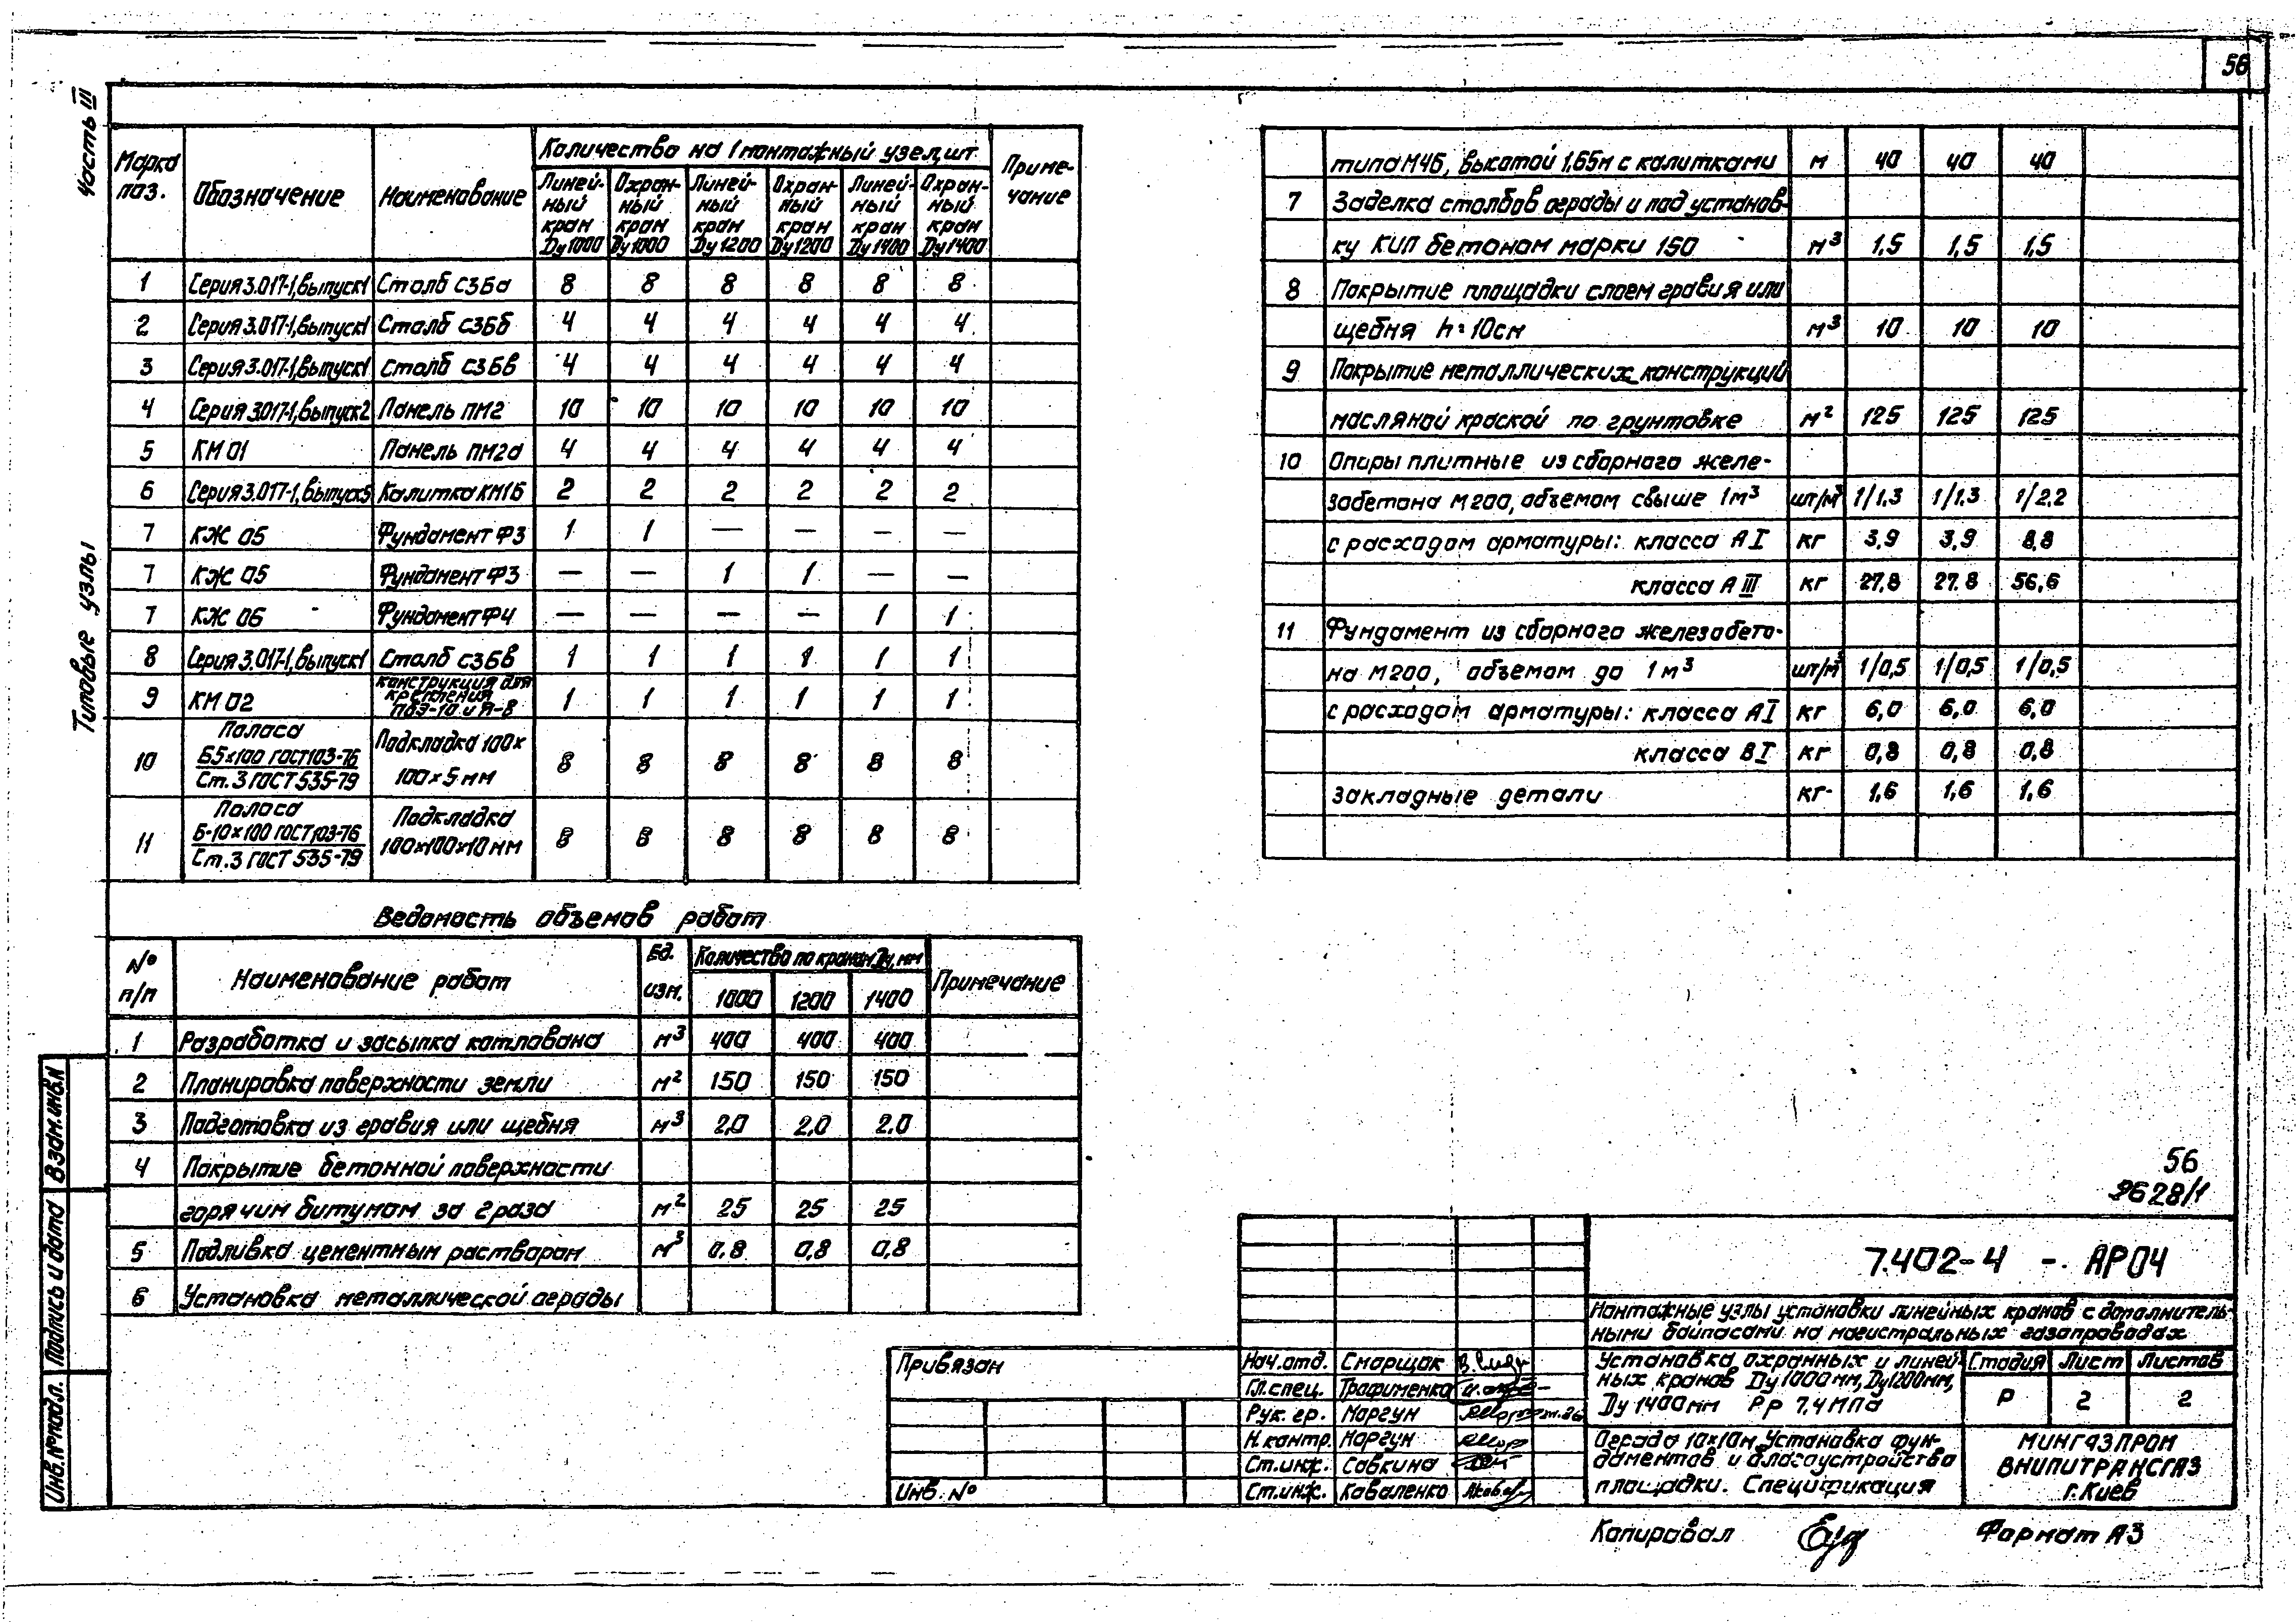 56
Часть III
Типовые узлы
Марка поз. | Обозначение | Наименование | Количество на 1 монтажный узел, шт. | Примечание
Линейный кран Ду1000 | Охранный кран Ду1000 | Линейный кран Ду1200 | Охранный кран Ду1200 | Линейный кран Ду1400 | Охранный кран Ду1400
1 Серия 3.017-1, выпуск 1 Столб С3Ба 8 8 8 8 8 8
2 Серия 3.017-1, выпуск 1 Столб С3Бб 4 4 4 4 4 4
3 Серия 3.017-1, выпуск 1 Столб С3Бв 4 4 4 4 4 4
4 Серия 3.017-1, выпуск 2 Панель ПМ2 10 10 10 10 10 10
5 КМ 01 Панель ПМ2а 4 4 4 4 4 4
6 Серия 3.017-1, выпуск 5 Калитка КМ1Б 2 2 2 2 2 2
7 КЖ 05 Фундамент Ф3 1 1 — — — —
7 КЖ 05 Фундамент Ф3 — — 1 1 — —
7 КЖ 06 Фундамент Ф4 — — — — 1 1
8 Серия 3.017-1, выпуск 1 Столб С3Бв 1 1 1 1 1 1
9 КМ 02 конструкция для крепления ПВЗ-10 и Я-8 1 1 1 1 1 1
10 Полоса Б5х100 ГОСТ 103-76 Ст.3 ГОСТ 535-79 Подкладка 100х100х5мм 8 8 8 8 8 8
11 Полоса Б-10х100 ГОСТ 103-76 Ст.3 ГОСТ 535-79 Подкладка 100х100х10мм 8 8 8 8 8 8
Ведомость объемов работ
№ п/п | Наименование работ | Ед. изм. | Количество по кранам Ду, мм | Примечание
1000 1200 1400
1 Разработка и засыпка котлована м³ 400 400 400
2 Планировка поверхности земли м² 150 150 150
3 Подготовка из гравия или щебня м³ 2,0 2,0 2.0
4 Покрытие бетонной поверхности
горячим битумом за 2 раза м² 25 25 25
5 Подливка цементным раствором м³ 0.8 0,8 0,8
6 Установка металлической ограды
типа М4Б, высотой 1,65м с калитками м 40 40 40
7 Заделка столбов ограды и под установ-
ку КИП бетоном марки 150 м³ 1,5 1,5 1,5
8 Покрытие площадки слоем гравия или
щебня h=10см м³ 10 10 10
9 Покрытие металлических конструкций
масляной краской по грунтовке м² 125 125 125
10 Опоры плитные из сборного желе-
зобетона М200, объемом свыше 1м³ шт/м³ 1/1.3 1/1.3 1/2.2
с расходом арматуры: класса А I кг 3,9 3,9 8,8
класса А III кг 27,8 27.8 56,6
11 Фундамент из сборного железобето-
на М200, объемом до 1 м³ шт/м³ 1/0,5 1/0,5 1/0,5
с расходом арматуры: класса А I кг 6,0 6,0 6,0
класса В I кг 0,8 0,8 0,8
закладные детали кг 1,6 1,6 1,6
56
9628/1
7.402-4 - АР04
Монтажные узлы установки линейных кранов с дополнитель-
ными байпасами на магистральных газопроводах
Установка охранных и линей-
ных кранов Ду1000мм, Ду1200мм,
Ду 1400мм Рр 7.4 МПа
Стадия Лист Листов
Р 2 2
Ограда 10х10м. Установка фун-
даментов и благоустройство
площадки. Спецификация
МИНГАЗПРОМ
ВНИПИТРАНСГАЗ
г. Киев
Нач.отд. Сморщак
Гл.спец. Трофименко
Рук. гр. Моргун
Н.контр. Моргун
Ст.инж. Савкина
Ст.инж. Коваленко
Привязан
Инв. №
Взам.инв.№
Подпись и дата
Инв.№подл.
Копировал
Формат А3